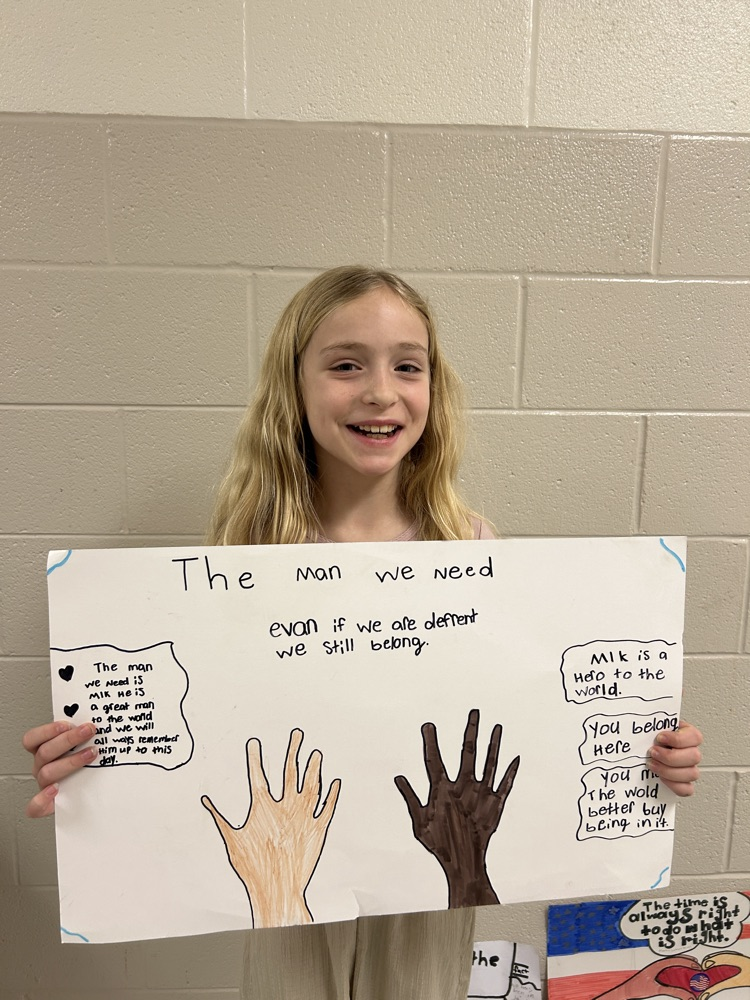 The man we need
evan if we are defrent
we still belong.
The man
we need is
Mlk He is
a great man
to the world
and we will
all ways remember
Him up to this
day.
Mlk is a
Hero to the
world.
You belong
Here
You
The wold
better buy
being in it.
the
The time is
always right
to do what
is right.